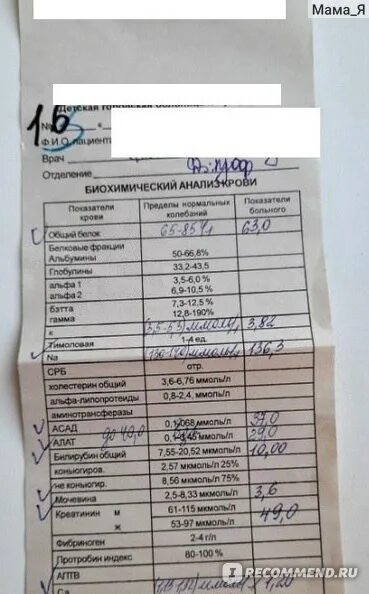 Мама_Я
16
№
Ф.И.О. пациента
Врач
Отделение
БИОХИМИЧЕСКИЙ АНАЛИЗ КРОВИ
Показатели крови Пределы нормальных колебаний Показатели больного
Общий белок 65-85 г/л 63,0
Белковые фракции
Альбумины 50-66,8%
Глобулины 33,2-43,5
альфа 1 3,5-6,0 %
альфа 2 6,9-10,5 %
бэтта 7,3-12,5 %
гамма 12,8-190%
К ммоль/л 3,82
Тимоловая 1-4 ед.
Na ммоль/л 136,3
СРБ отр.
холестерин общий 3,6-6,76 ммоль/л
альфа-липопротеиды 0,8-2,4, ммоль/л
аминотрансферазы
АСАД 37,0
АЛАТ до 40,0 29,0
Билирубин общий 7,55-20,52 мкмоль/л 10,00
конъюгиров. 2,57 мкмоль/л 25%
не конъюгир. 8,56 мкмоль/л 75%
Мочевина 2,5-8,33 мкмоль/л 3,6
Креатинин м 61-115 мкмоль/л 49,0
ж 53-97 мкмоль/л
Фибриноген 2-4 г/л
Протробин индекс 80-100 %
АПТВ
Ca ммоль/л 1,20
IRECOMMEND.RU